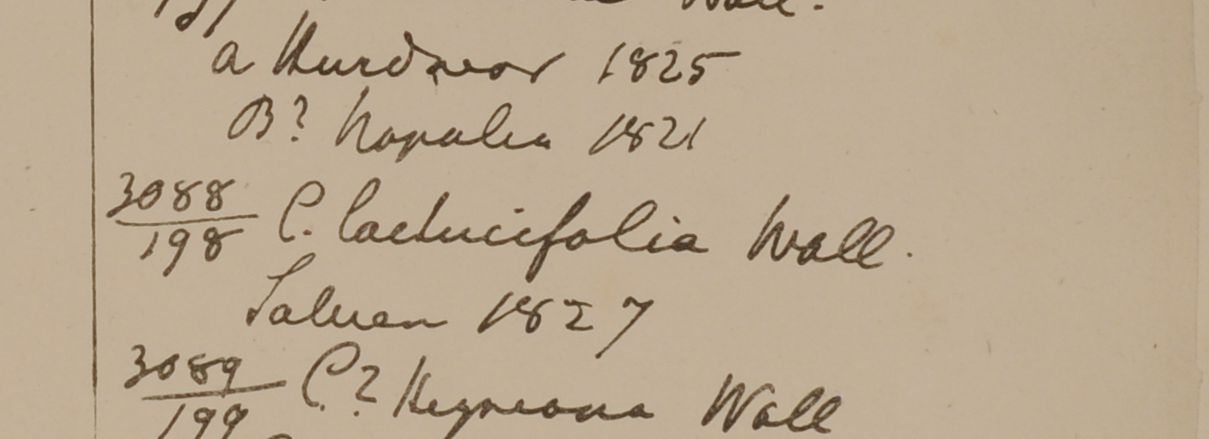 Wall.
a Hurdwar 1825
B? Napalia 1821
3088/198 C. lactucifolia Wall.
Saluen 1827
3089/199 C.? Heyneana Wall